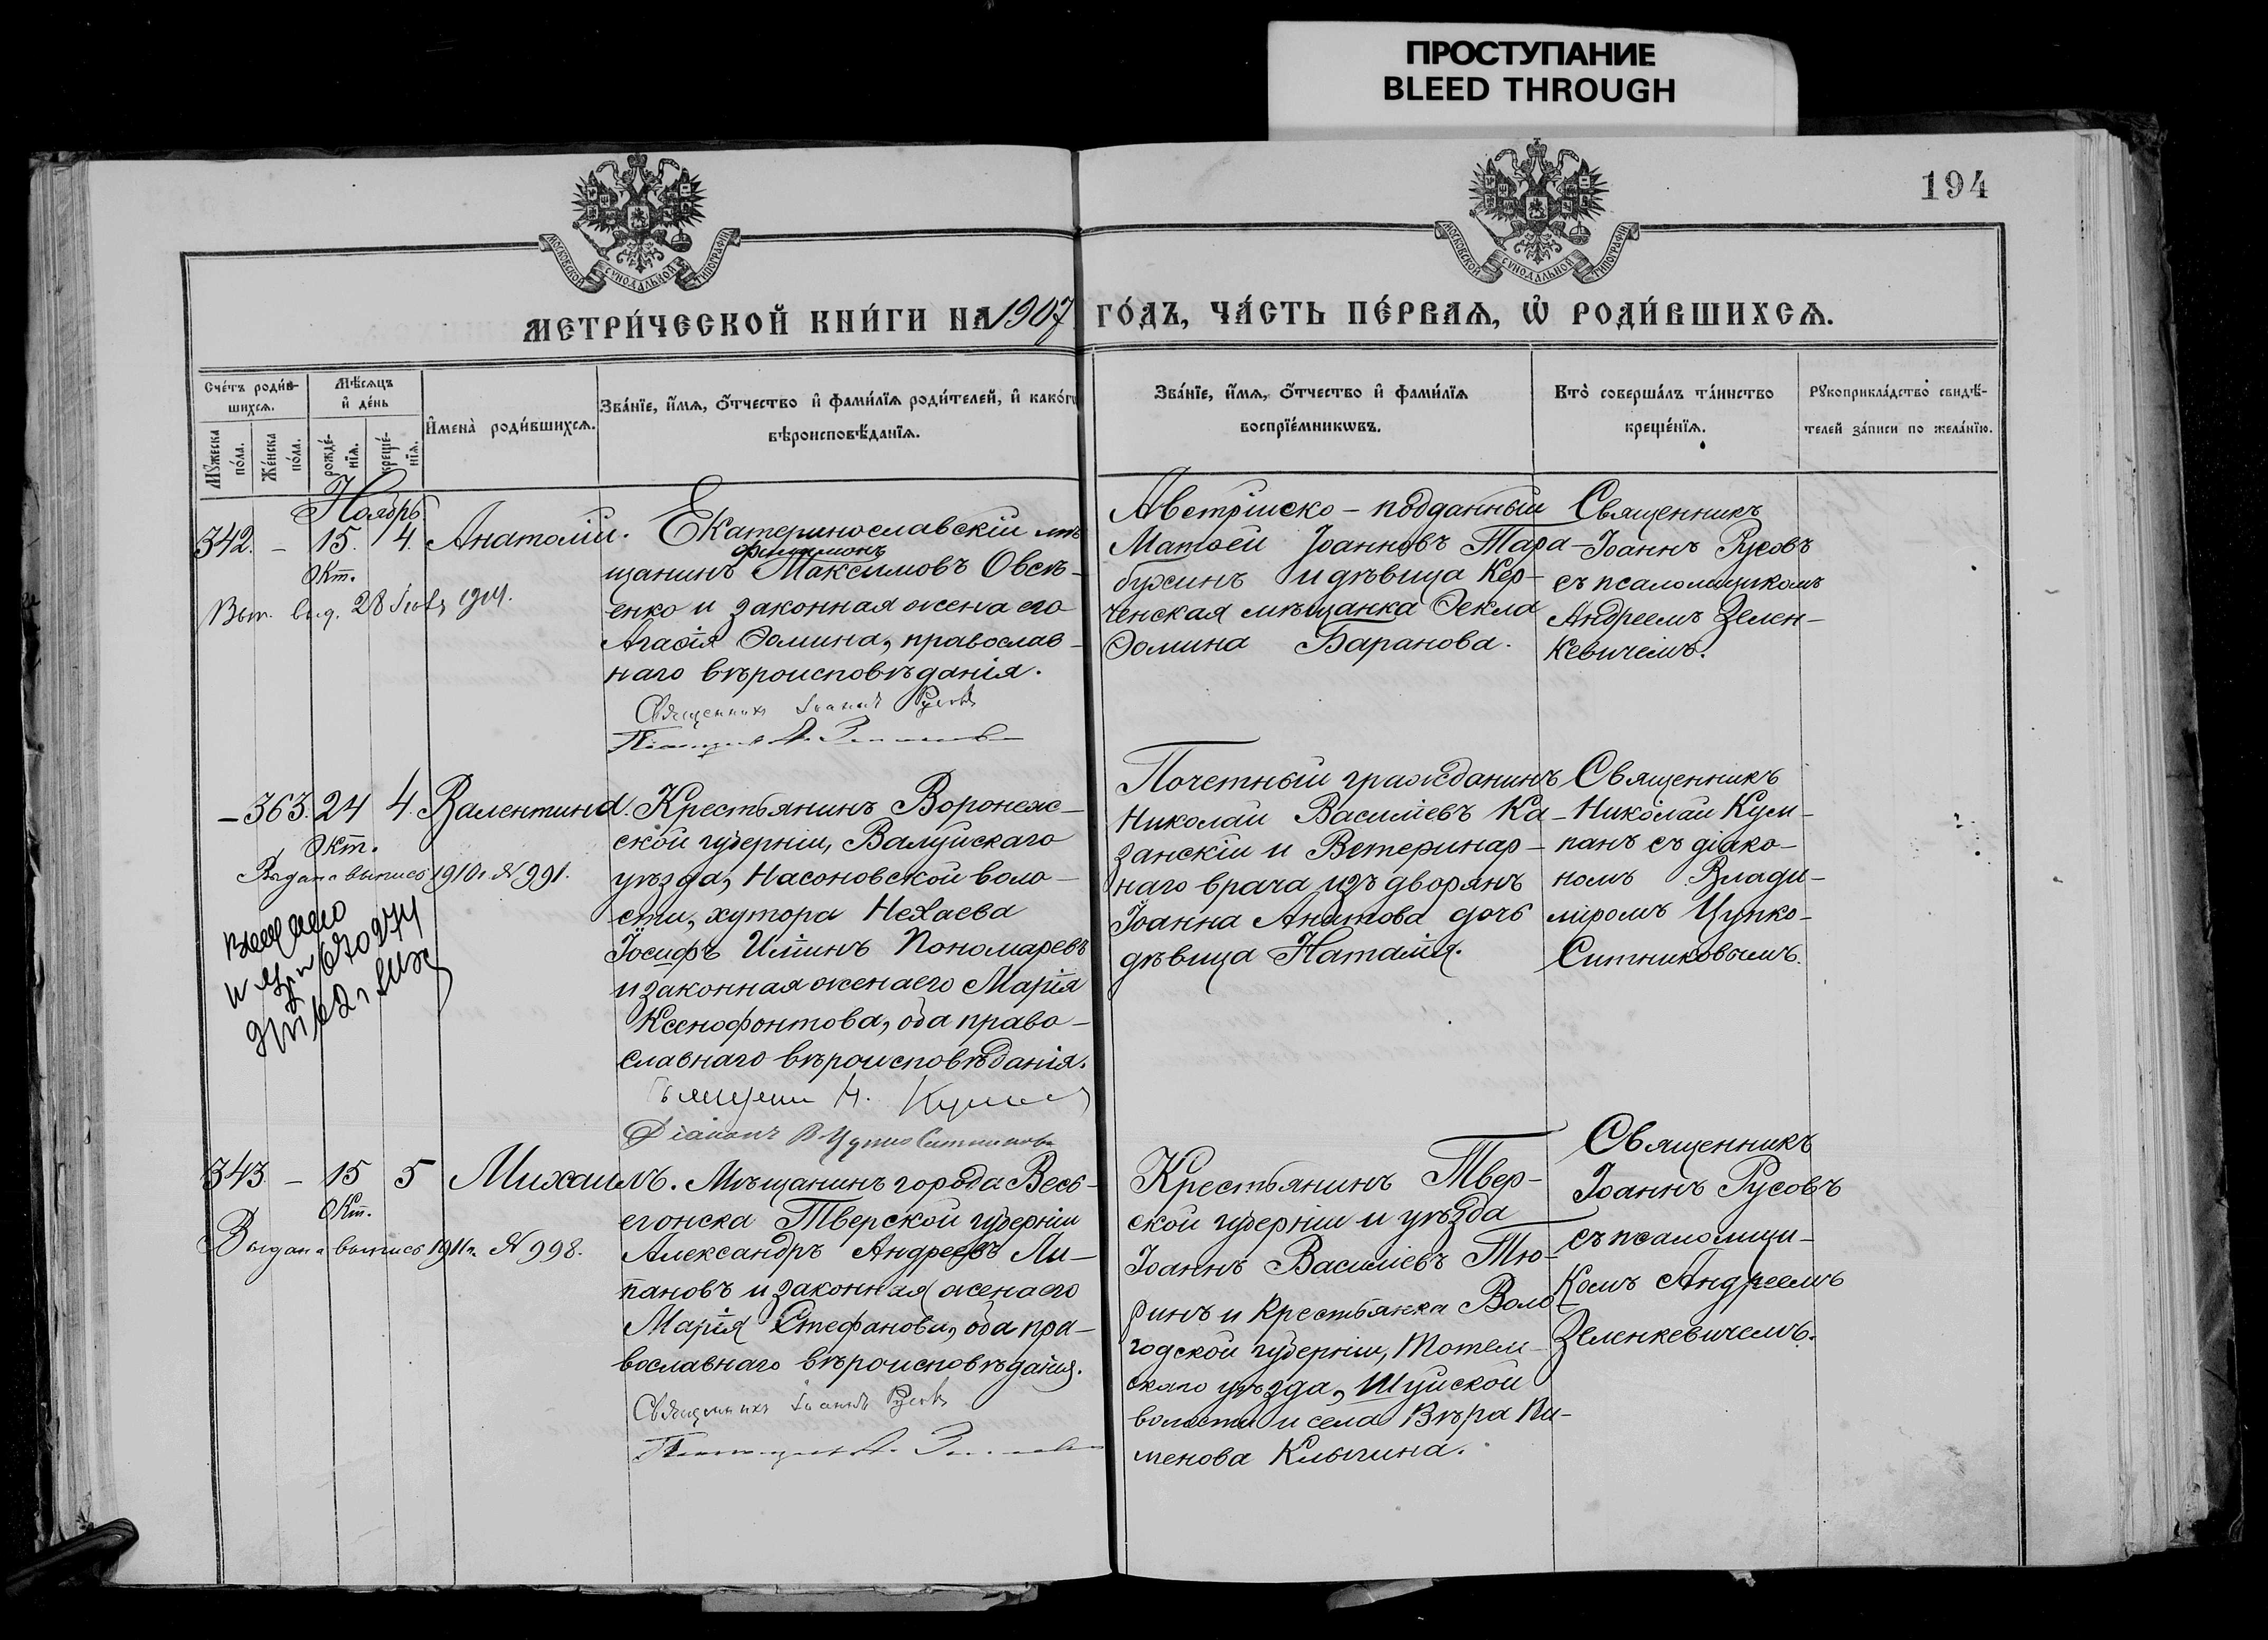 ПРОСТУПАНИЕ
BLEED THROUGH
194
МОСКОВСКОЙ СУНОДАЛЬНОЙ ТИПОГРАФІИ
МОСКОВСКОЙ СУНОДАЛЬНОЙ ТИПОГРАФІИ
МЕТРИ́ЧЕСКОЙ КНИ́ГИ НА 1907 ГО́ДЪ, ЧА́СТЬ ПЕ́РВАЯ, Ѡ҆ РОДИ́ВШИХСЯ.
Сче́тъ роди́в-
шихся.
Мꙋжеска по́ла.
Же́нска по́ла.
Мѣ́сяцъ
и҆ де́нь
рожде́-
нїя.
креще́-
нїя.
И҆мена̀ роди́вшихся.
Зва́нїе, и҆́мя, о҆́тчество и҆ фами́лїя роди́телей, и҆ како́гѡ
вѣроисповѣ́данїя.
Зва́нїе, и҆́мя, о҆́тчество и҆ фами́лїя
воспрїе́мникѡвъ.
Кто̀ соверша́лъ та́инство
креще́нїя.
Рꙋкоприкла́дство свидѣ́-
телей за́писи по жела́нїю.
Ноябрь
342. – 15. 4. Анатолій.
Окт.
Вып. выд. 28 1914.
Екатеринославскій мѣ-
Филимонъ
щанинъ Максимовъ Овсѣ-
енко и законная жена его
Агаѳія Ѳомина, православ-
наго вѣроисповѣданія.
Священникъ Іоаннъ Русовъ
Австрійско-подданный
Матѳей Іоанновъ Тара-
бужинъ и дѣвица Кер-
ченская мѣщанка Ѳекла
Ѳомина Баранова.
Священникъ
Іоаннъ Русовъ
съ псаломщикомъ
Андреемъ Зелен-
кевичемъ.
– 363. 24 4. Валентина.
Окт.
Выдана выпись 1910 г. № 991.
Крестьянинъ Воронеж-
ской губерніи, Валуйскаго
уѣзда, Насоновской воло-
сти, хутора Нехаева
Іосифъ Ильинъ Пономаревъ
и законная жена его Марія
Ксенофонтова, оба право-
славнаго вѣроисповѣданія.
Діаконъ В. Цупко Ситниковъ
Почетный гражданинъ
Николай Василіевъ Ка-
занскій и Ветеринар-
наго врача изъ дворянъ
Іоанна Анатова дочь
дѣвица Наталія.
Священникъ
Николай Кум-
панъ съ діако-
номъ Влади-
міромъ Цупко-
Ситниковымъ.
343. – 15 5 Михаилъ.
Окт.
Выдана выпись 1911 г. № 998.
Мѣщанинъ города Весь-
егонска Тверской губерніи
Александръ Андреевъ Ли-
пановъ и законная жена его
Марія Стефанова, оба пра-
вославнаго вѣроисповѣданія.
Священникъ Іоаннъ Русовъ
Крестьянинъ Твер-
ской губерніи и уѣзда
Іоаннъ Василіевъ Тю-
ринъ и крестьянка Воло-
годской губерніи, Тотем-
скаго уѣзда, Шуйской
волости и села Вѣра Пи-
менова Клыгина.
Священникъ
Іоаннъ Русовъ
съ псаломщи-
комъ Андреемъ
Зеленкевичемъ.